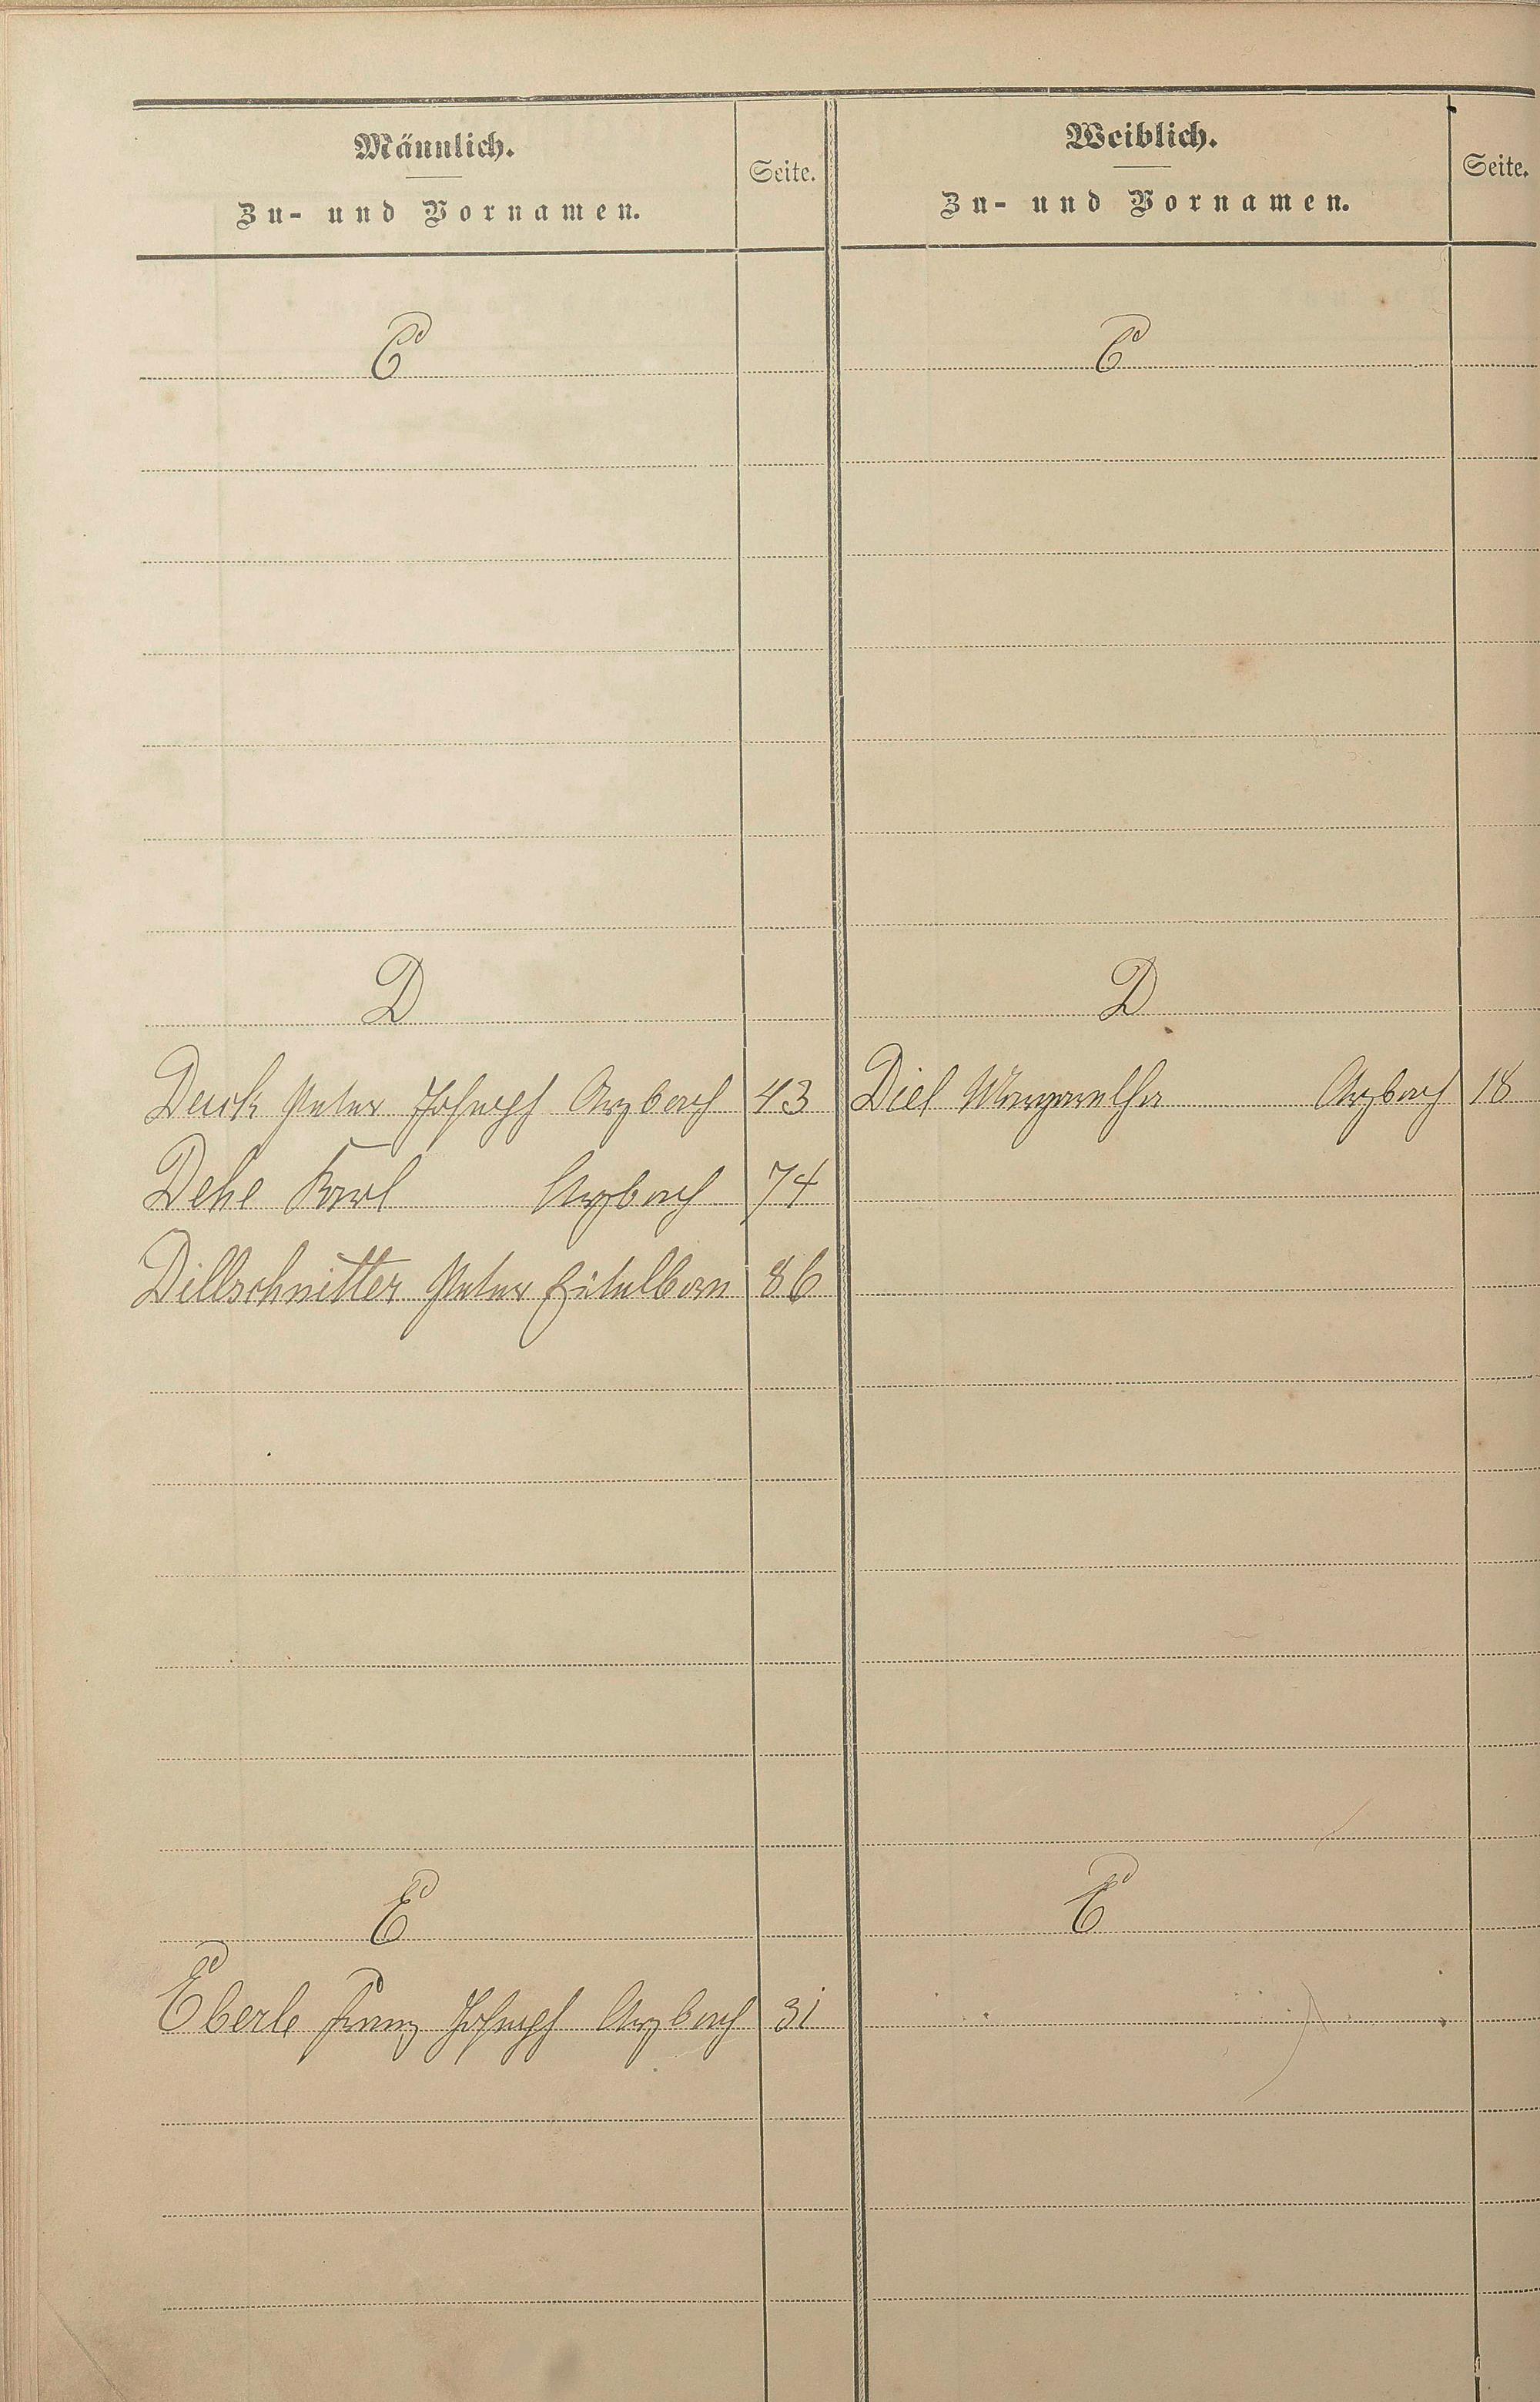 Männlich.
Zu- und Vornamen.
Seite.
Weiblich.
Zu- und Vornamen.
Seite.
C
C
D
D
Deuck Peter Joseph Arzbach 43
Diel Margaretha Arzbach 18
Dehe Karl Arzbach 74
Dillschnitter Peter Eitelborn 86
E
E
Eberle Franz Joseph Arzbach 31